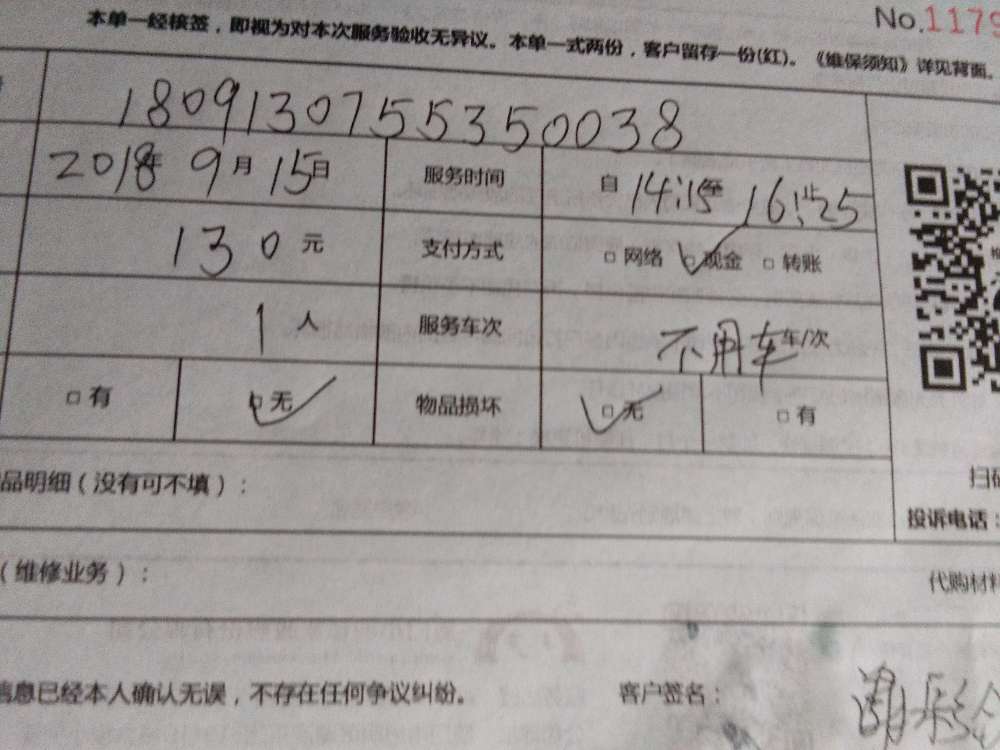 No.1179
本单一经核签，即视为对本次服务验收无异议。本单一式两份，客户留存一份(红)。《维保须知》详见背面。
180913075535003​8
2018年 9月 15日 服务时间 自 14:15至 16:25止
130元 支付方式 □网络 □现金 □转账
1人 服务车次 不用车 车/次
□有 □无 物品损坏 □无 □有
品明细（没有可不填）： 扫码
投诉电话：
（维修业务）： 代购材料
信息已经本人确认无误，不存在任何争议纠纷。 客户签名：